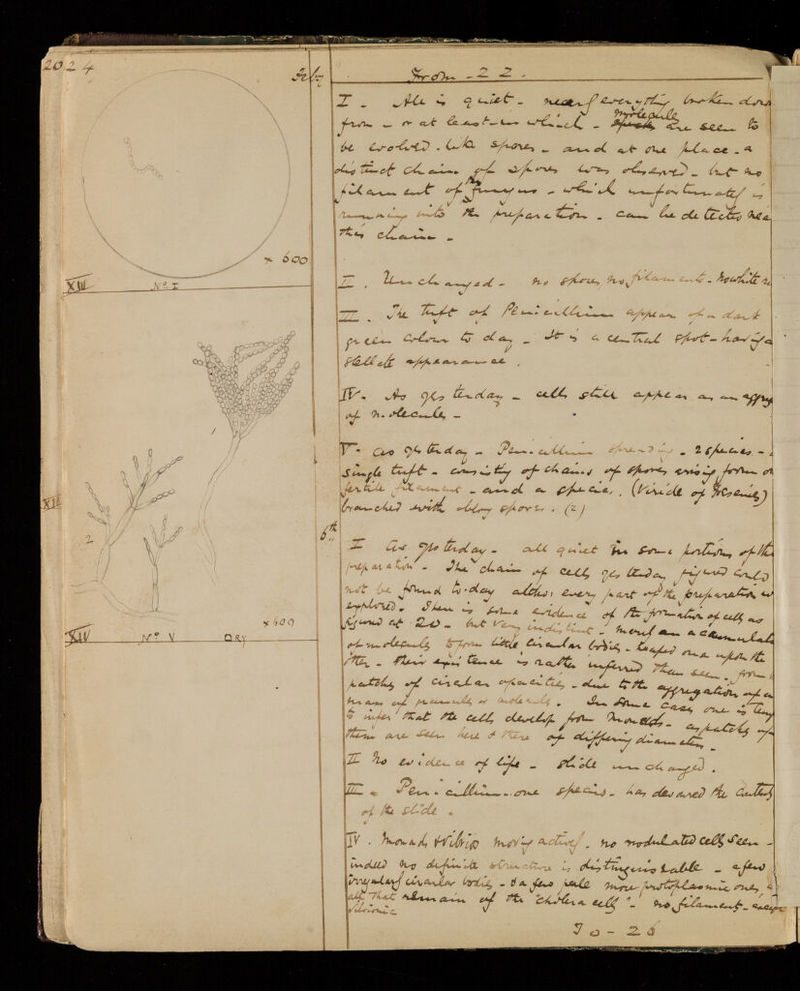 2024
Feby
From - 22.
I - All is quiet - nearly everything broken down
from - or at least in which - molecule are seen to
be evolved. like spores - and at one place - a
distinct chain of spores was observed - but no
filament of fungus - which unfortunately is
running into the preparation - can be detected near
this chain -
× 600
XIII No I
II. Unchanged - no spores, no filaments - No white
III. The tuft of Penicillium appears of a dark
green colour to day - It is a central spot - having a
stellate appearance.
IV. As yesterday - cells still appear as an aggreg
of molecules -
V - as yesterday - Penicillium spreading - 2 species -
1
single tuft - consisty of chains of spores arising from a
fertile filament - and a species. (Viride of Fresenius)
XII
branched with oblong spores. (2)
2
6th
I As yesterday - all quiet in some portions of the
preparation - The chain of cells yesterday figured could
not be found to-day altho: every part of the preparation is
explored. There is some evidence of the formation of cells as
× 600
figured at 20 - but very indistinct - merely an accumulat
XIV No V DRY
of molecules to form little circular bodies - heaped one upon the
other - their existence is rather inferred than seen - from
patches of circular opacities - due to the aggregation of a
mass of granules or molecules. In some cases one is tem
to infer that the cells develop from Monads - as patches of
them are seen here & there of differing diameters -
II No evidence of life - slide unchanged.
III - Penicillium - one species - has devoured the contents
of the slide.
IV. Monads & Vibrios moving actively. no nodulated cells seen -
indeed no definite structure is distinguishable - a few
irregularly circular bodies - & a few pale more protoplasmic ones,
all that remain of the "cholera cells" - no filaments - except
vibrionic
To - 26